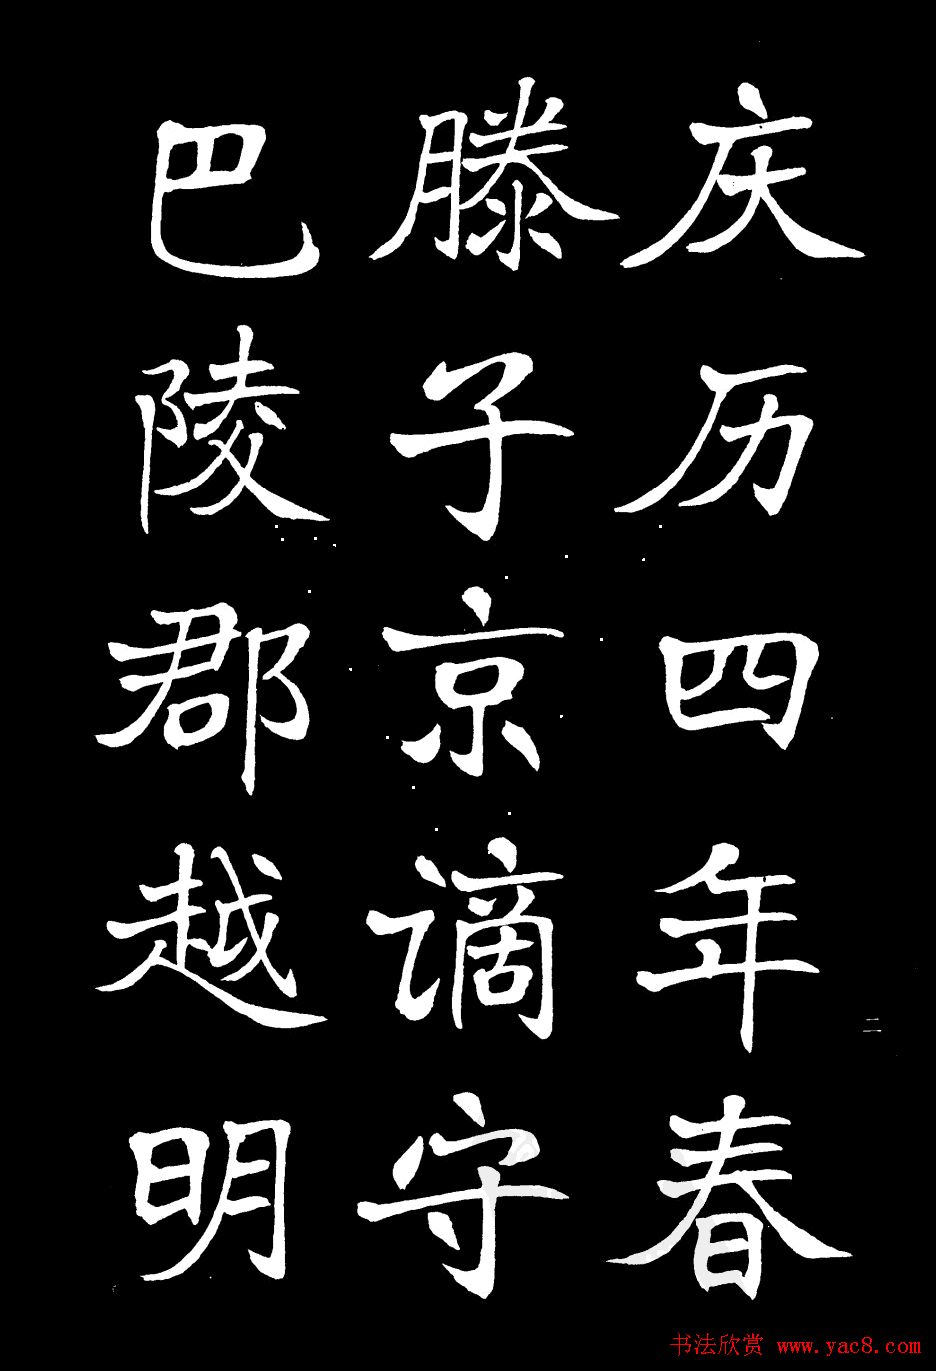 庆历四年春
滕子京谪守
巴陵郡越明
二
书法欣赏 www.yac8.com